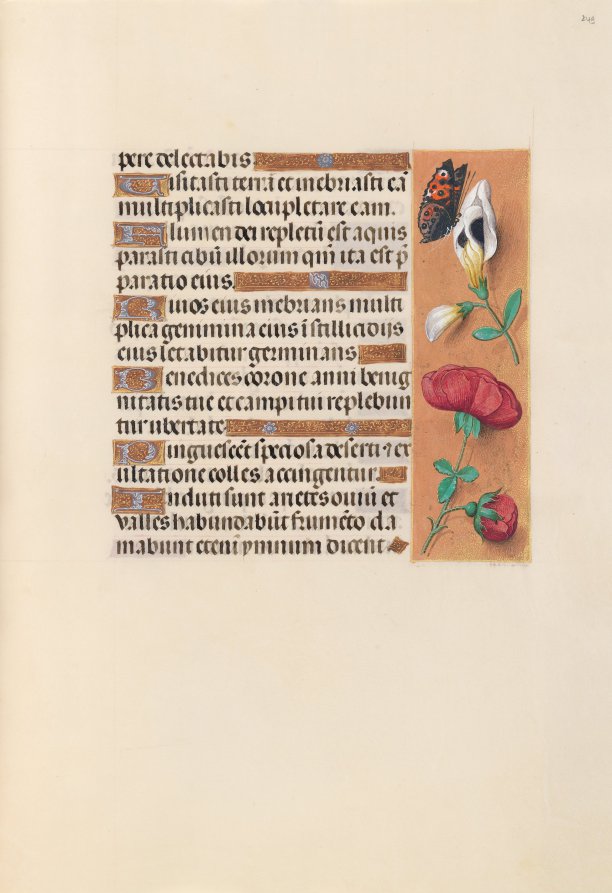 249
pere delectabis
Uisitasti terrā et inebriasti eā
multiplicasti locupletare eam.
Flumen dei repletū est aquis
parasti cibū illorum qm̄ ita est p̄
paratio eius
Riuos eius inebrians multi
plica genimina eius ī stillicidijs
eius letabitur germinans
Benedices corone anni benig
nitatis tue et campi tui replebun
tur ubertate
Pinguescēt speciosa deserti ⁊ ex
ultatione colles accingentur
Induti sunt arietes ouiū et
valles habundabūt frumēto cla
mabunt etenī ymnum dicent